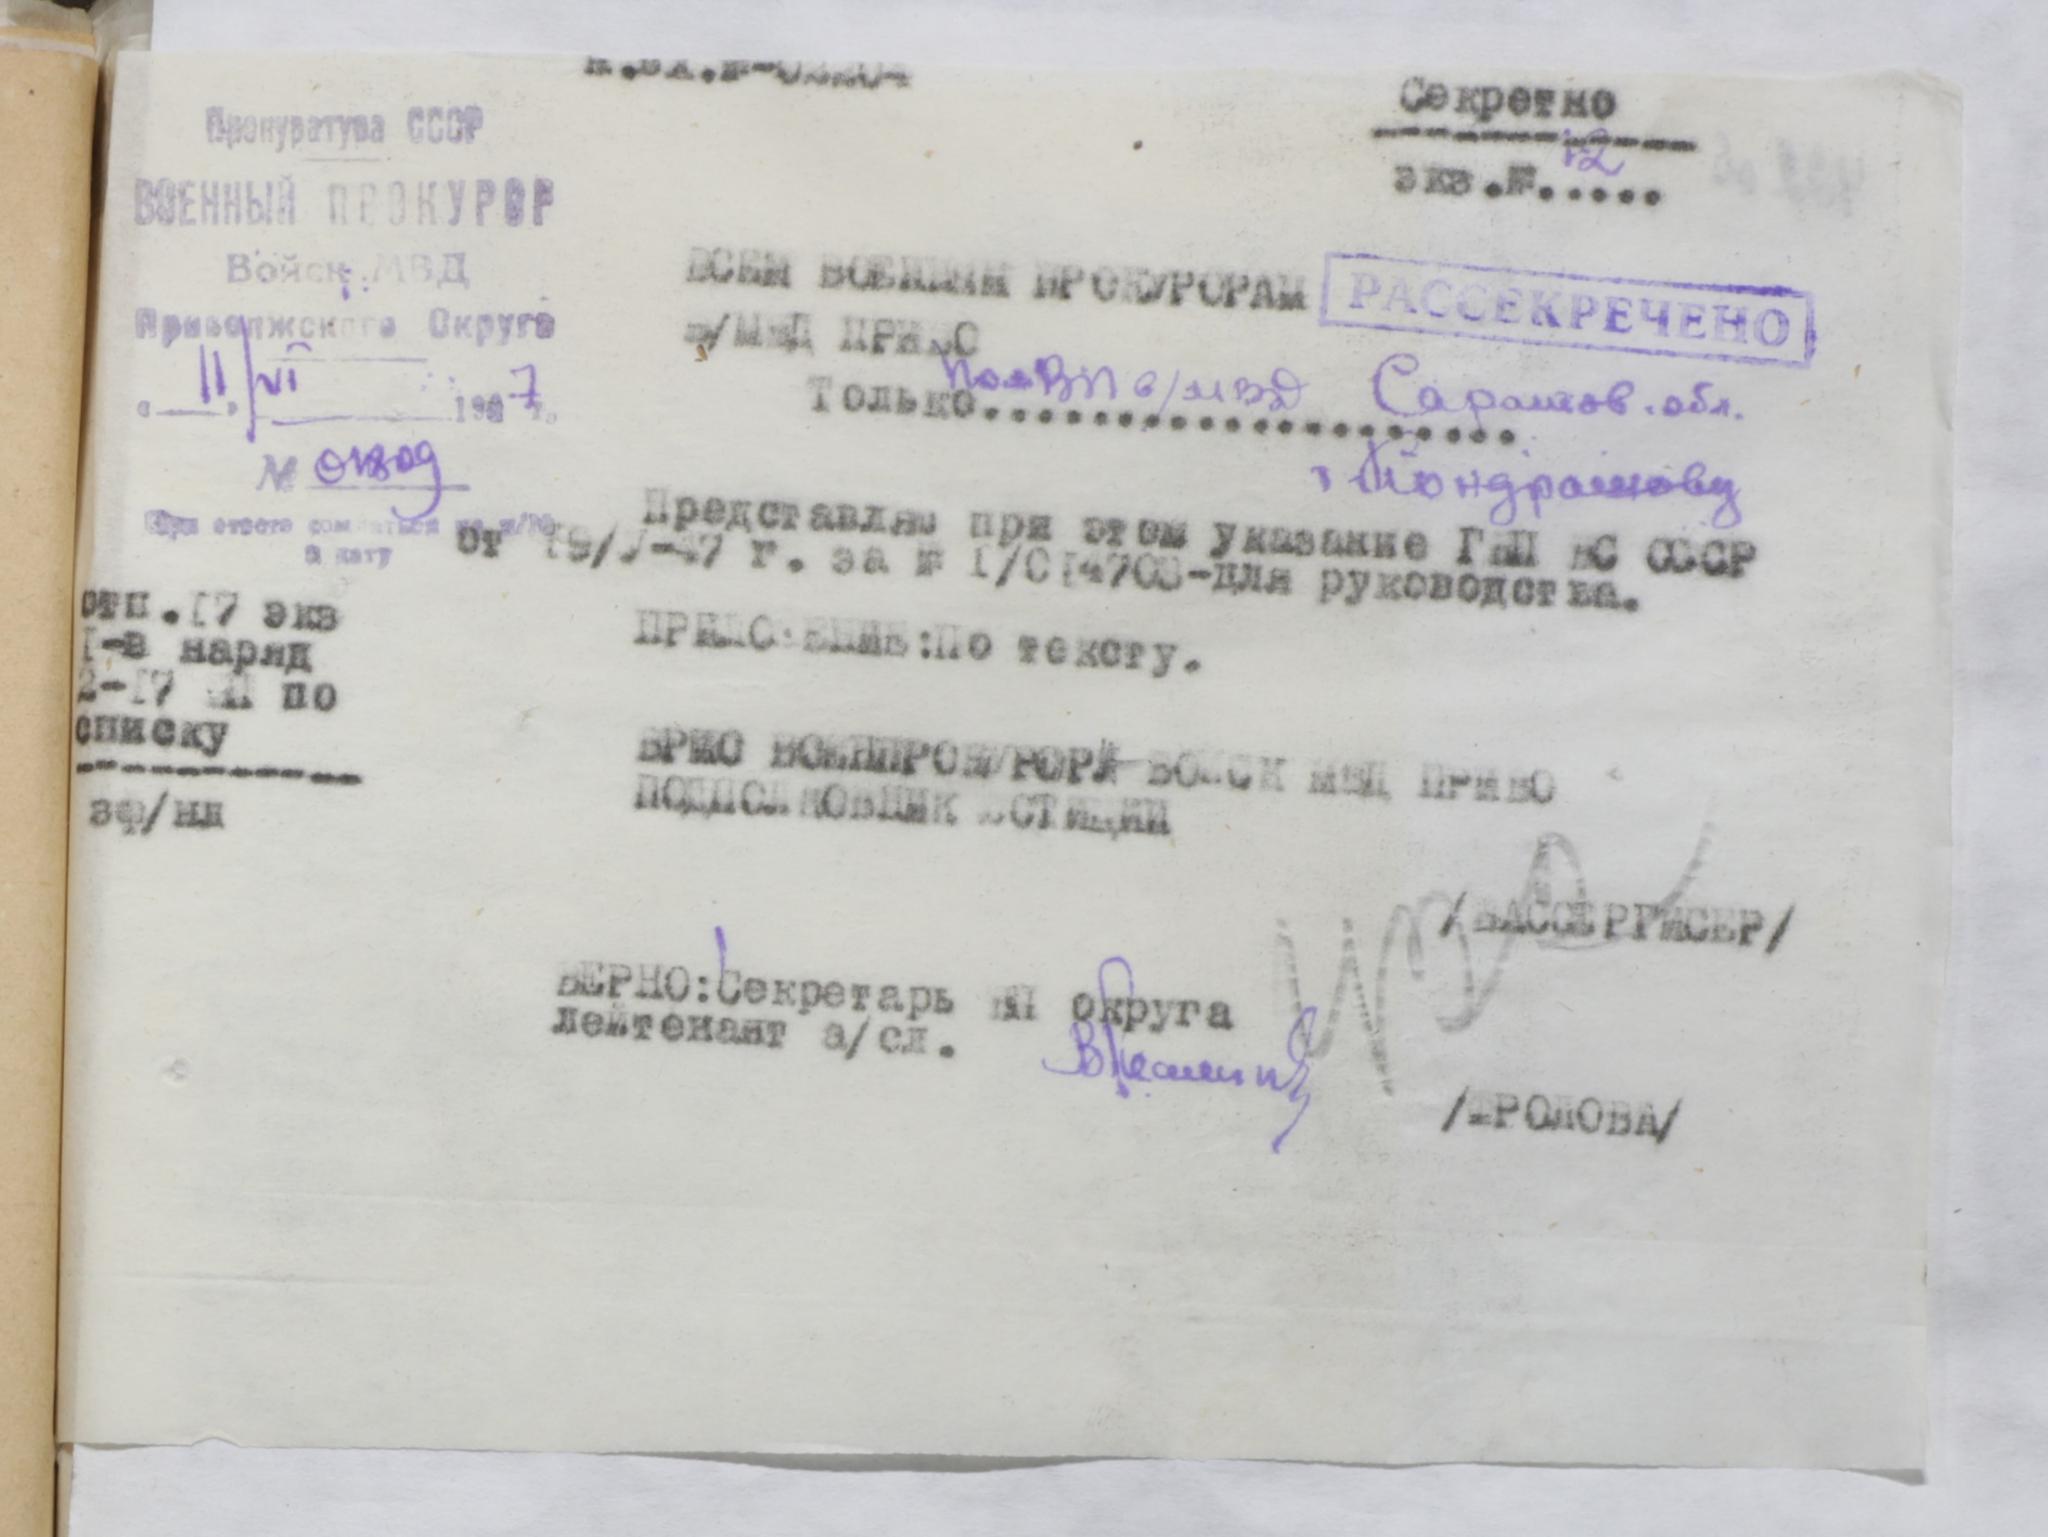 Секретно
экз.№.....
12
Прокуратура СССР
ВОЕННЫЙ ПРОКУРОР
Войск МВД
Приволжского Округа
"11" VI 1947 г.
№ 01809
При ответе ссылаться на н/№
и дату
ВСЕМ ВОЕННЫМ ПРОКУРОРАМ
в/МВД ПРИВО
РАССЕКРЕЧЕНО
Только.......................
ВП в/МВД Саратов. обл.
т Кондрашову
Представляю при этом указание ГВП ВС СССР
от 19/V-47 г. за № I/014708-для руководства.
ПРИЛОЖЕНИЕ:По тексту.
отп.I7 экз
I-в наряд
2-I7 ВП по
списку
зф/нл
ВРИО ВОЕНПРОКУРОРА ВОЙСК МВД ПРИВО
ПОДПОЛКОВНИК ЮСТИЦИИ
/ВАССЕРГИСЕР/
ВЕРНО:Секретарь ВП округа
лейтенант а/сл.
/ФРОЛОВА/